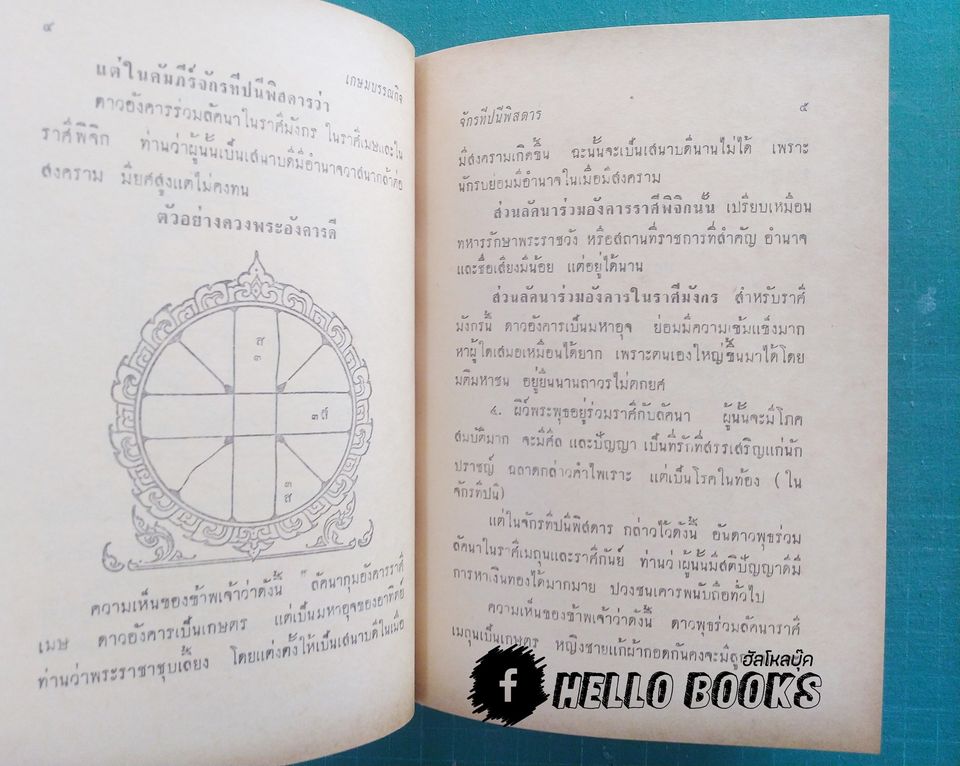 ๔
เกษมบรรณกิจ
แต่ในคัมภีร์จักรทีปนีพิสดารว่า
ดาวอังคารร่วมลัคนาในราศีมังกร ในราศีเมษและใน
ราศีพิจิก ท่านว่าผู้นั้นเป็นเสนาบดีมีอำนาจวาสนากล้าต่อ
สงคราม มียศสูงแต่ไม่คงทน
ตัวอย่างดวงพระอังคารดี
ส
๓
๓ส
๓
ส
ความเห็นของข้าพเจ้าว่าดังนี้ ลัคนากุมอังคารราศี
เมษ ดาวอังคารเป็นเกษตร แต่เป็นมหาอุจของอาทิตย์
ท่านว่าพระราชาชุบเลี้ยง โดยแต่งตั้งให้เป็นเสนาบดีในเมื่อ
จักรทีปนีพิสดาร
๕
มีสงครามเกิดขึ้น ฉะนั้นจะเป็นเสนาบดีนานไม่ได้ เพราะ
นักรบย่อมมีอำนาจในเมื่อมีสงคราม
ส่วนลัคนาร่วมอังคารราศีพิจิกนั้น เปรียบเหมือน
ทหารรักษาพระราชวัง หรือสถานที่ราชการที่สำคัญ อำนาจ
และชื่อเสียงมีน้อย แต่อยู่ได้นาน
ส่วนลัคนาร่วมอังคารในราศีมังกร สำหรับราศี
มังกรนี้ ดาวอังคารเป็นมหาอุจ ย่อมมีความเข้มแข็งมาก
หาผู้ใดเสมอเหมือนได้ยาก เพราะตนเองใหญ่ขึ้นมาได้โดย
มติมหาชน อยู่ยืนนานถาวรไม่ตกยศ
๔. ผิว์พระพุธอยู่ร่วมราศีกับลัคนา ผู้นั้นจะมีโภค
สมบัติมาก จะมีศีล และปัญญา เป็นที่รักที่สรรเสริญแก่นัก
ปราชญ์ ฉลาดกล่าวคำไพเราะ แต่เป็นโรคในท้อง (ใน
จักรทีปนี)
แต่ในจักรทีปนีพิสดาร กล่าวไว้ดังนี้ อันดาวพุธร่วม
ลัคนาในราศีเมถุนและราศีกันย์ ท่านว่าผู้นั้นมีสติปัญญาดีมี
การหาเงินทองได้มากมาย ปวงชนเคารพนับถือทั่วไป
ความเห็นของข้าพเจ้าว่าดังนี้ ดาวพุธร่วมลัคนาราศี
เมถุนเป็นเกษตร หญิงชายแก้ผ้ากอดกันคงจะมี
ฮัลโหลบุ๊ค
f HELLO BOOKS